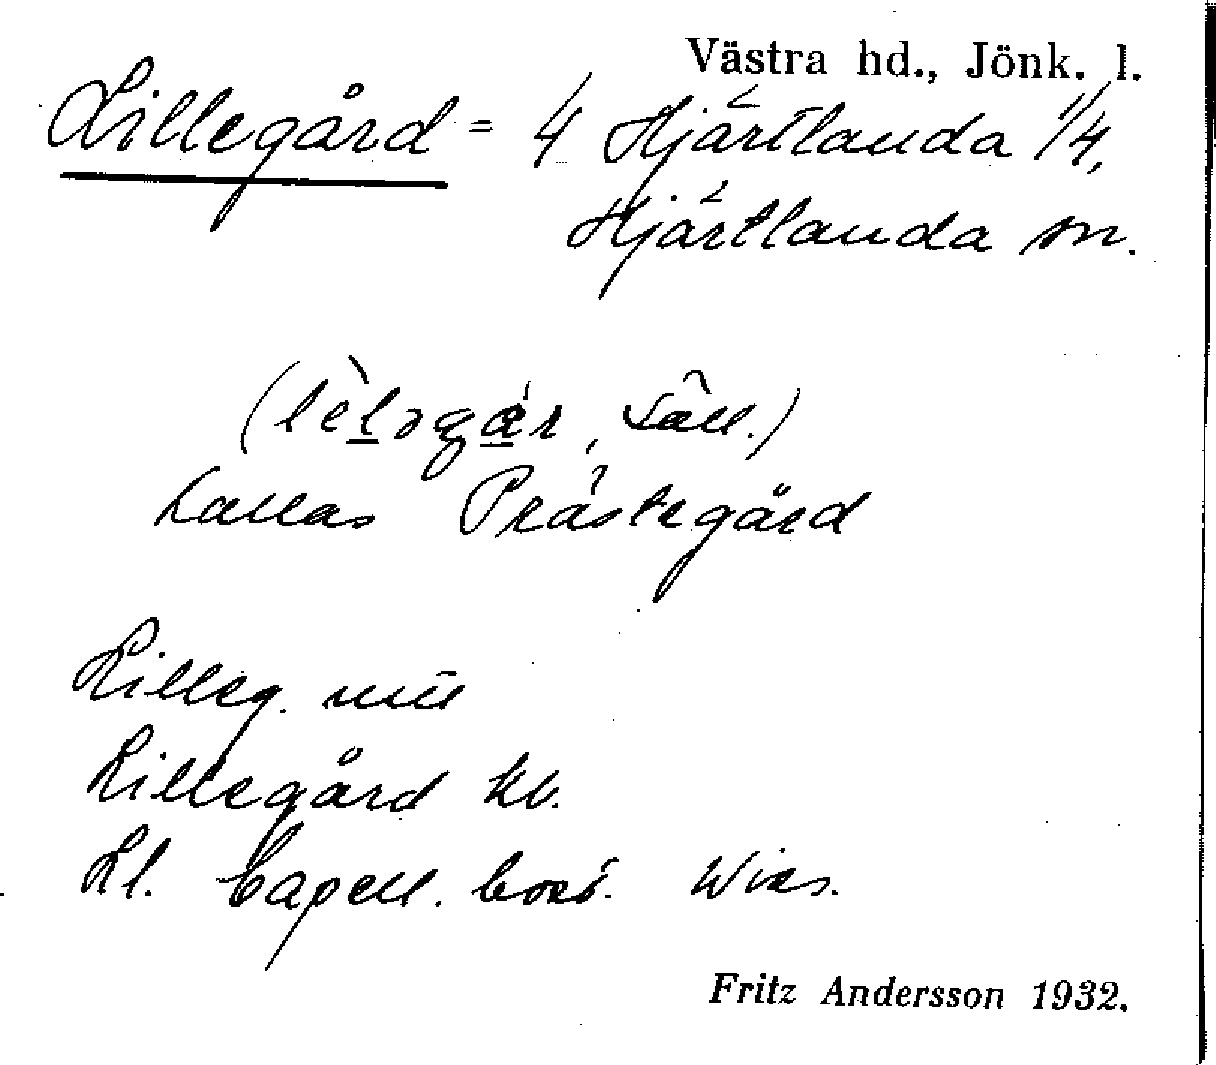 Västra hd., Jönk. l.
Lillegård = 4 Hjärtlanda 1/4,
Hjärtlanda sn.
(lèləgár, säll.)
kallas Prästegård
Lilleg. mtl
Lillegård kb.
Ll. Capell. bost. Wies.
Fritz Andersson 1932.